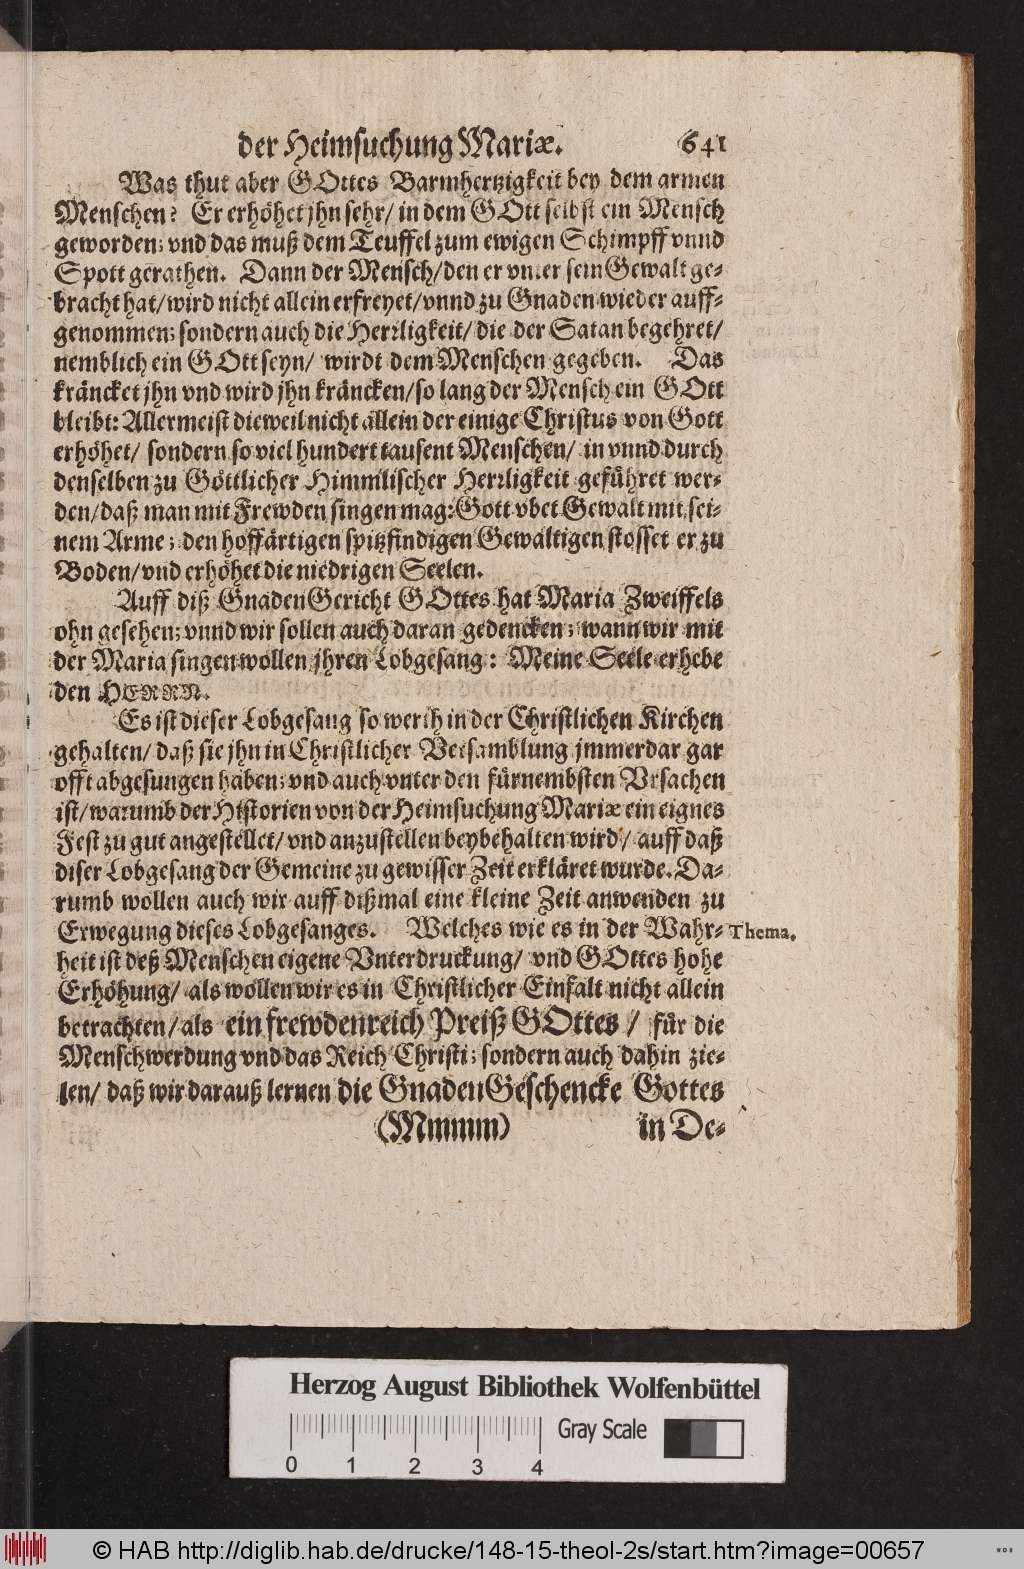 der Heimsuchung Mariæ. 641
Was thut aber GOttes Barmhertzigkeit bey dem armen
Menschen? Er erhöhet jhn sehr/ in dem GOtt selbst ein Mensch
geworden; vnd das muß dem Teuffel zum ewigen Schimpff vnnd
Spott gerathen. Dann der Mensch/ den er vnter sein Gewalt ge-
bracht hat/ wird nicht allein erfreyet/ vnnd zu Gnaden wieder auff-
genommen; sondern auch die Herrligkeit/ die der Satan begehret/
nemblich ein GOtt seyn/ wirdt dem Menschen gegeben. Das
kräncket jhn vnd wird jhn kräncken/ so lang der Mensch ein GOtt
bleibt: Allermeist dieweil nicht allein der einige Christus von Gott
erhöhet/ sondern so viel hundert tausent Menschen/ in vnnd durch
denselben zu Göttlicher Himmlischer Herrligkeit geführet wer-
den/ daß man mit Frewden singen mag: Gott vbet Gewalt mit sei-
nem Arme; den hoffärtigen spitzfindigen Gewaltigen stosset er zu
Boden/ vnd erhöhet die niedrigen Seelen.
Auff diß GnadenGericht GOttes hat Maria Zweiffels
ohn gesehen; vnnd wir sollen auch daran gedencken; wann wir mit
der Maria singen wollen jhren Lobgesang: Meine Seele erhebe
den HERRN.
Es ist dieser Lobgesang so werth in der Christlichen Kirchen
gehalten/ daß sie jhn in Christlicher Versamblung jmmerdar gar
offt abgesungen haben; vnd auch vnter den fürnembsten Vrsachen
ist/ warumb der Historien von der Heimsuchung Mariæ ein eignes
Fest zu gut angestellet/ vnd anzustellen beybehalten wird/ auff daß
diser Lobgesang der Gemeine zu gewisser Zeit erkläret wurde. Da-
rumb wollen auch wir auff dißmal eine kleine Zeit anwenden zu
Erwegung dieses Lobgesanges. Welches wie es in der Wahr- Thema.
heit ist deß Menschen eigene Vnterdruckung/ vnd GOttes hohe
Erhöhung/ als wollen wir es in Christlicher Einfalt nicht allein
betrachten/ als ein frewdenreich Preiß GOttes/ für die
Menschwerdung vnd das Reich Christi; sondern auch dahin zie-
len/ daß wir darauß lernen die GnadenGeschencke Gottes
(Mmmm) in De-
Herzog August Bibliothek Wolfenbüttel
Gray Scale
0 1 2 3 4
© HAB http://diglib.hab.de/drucke/148-15-theol-2s/start.htm?image=00657